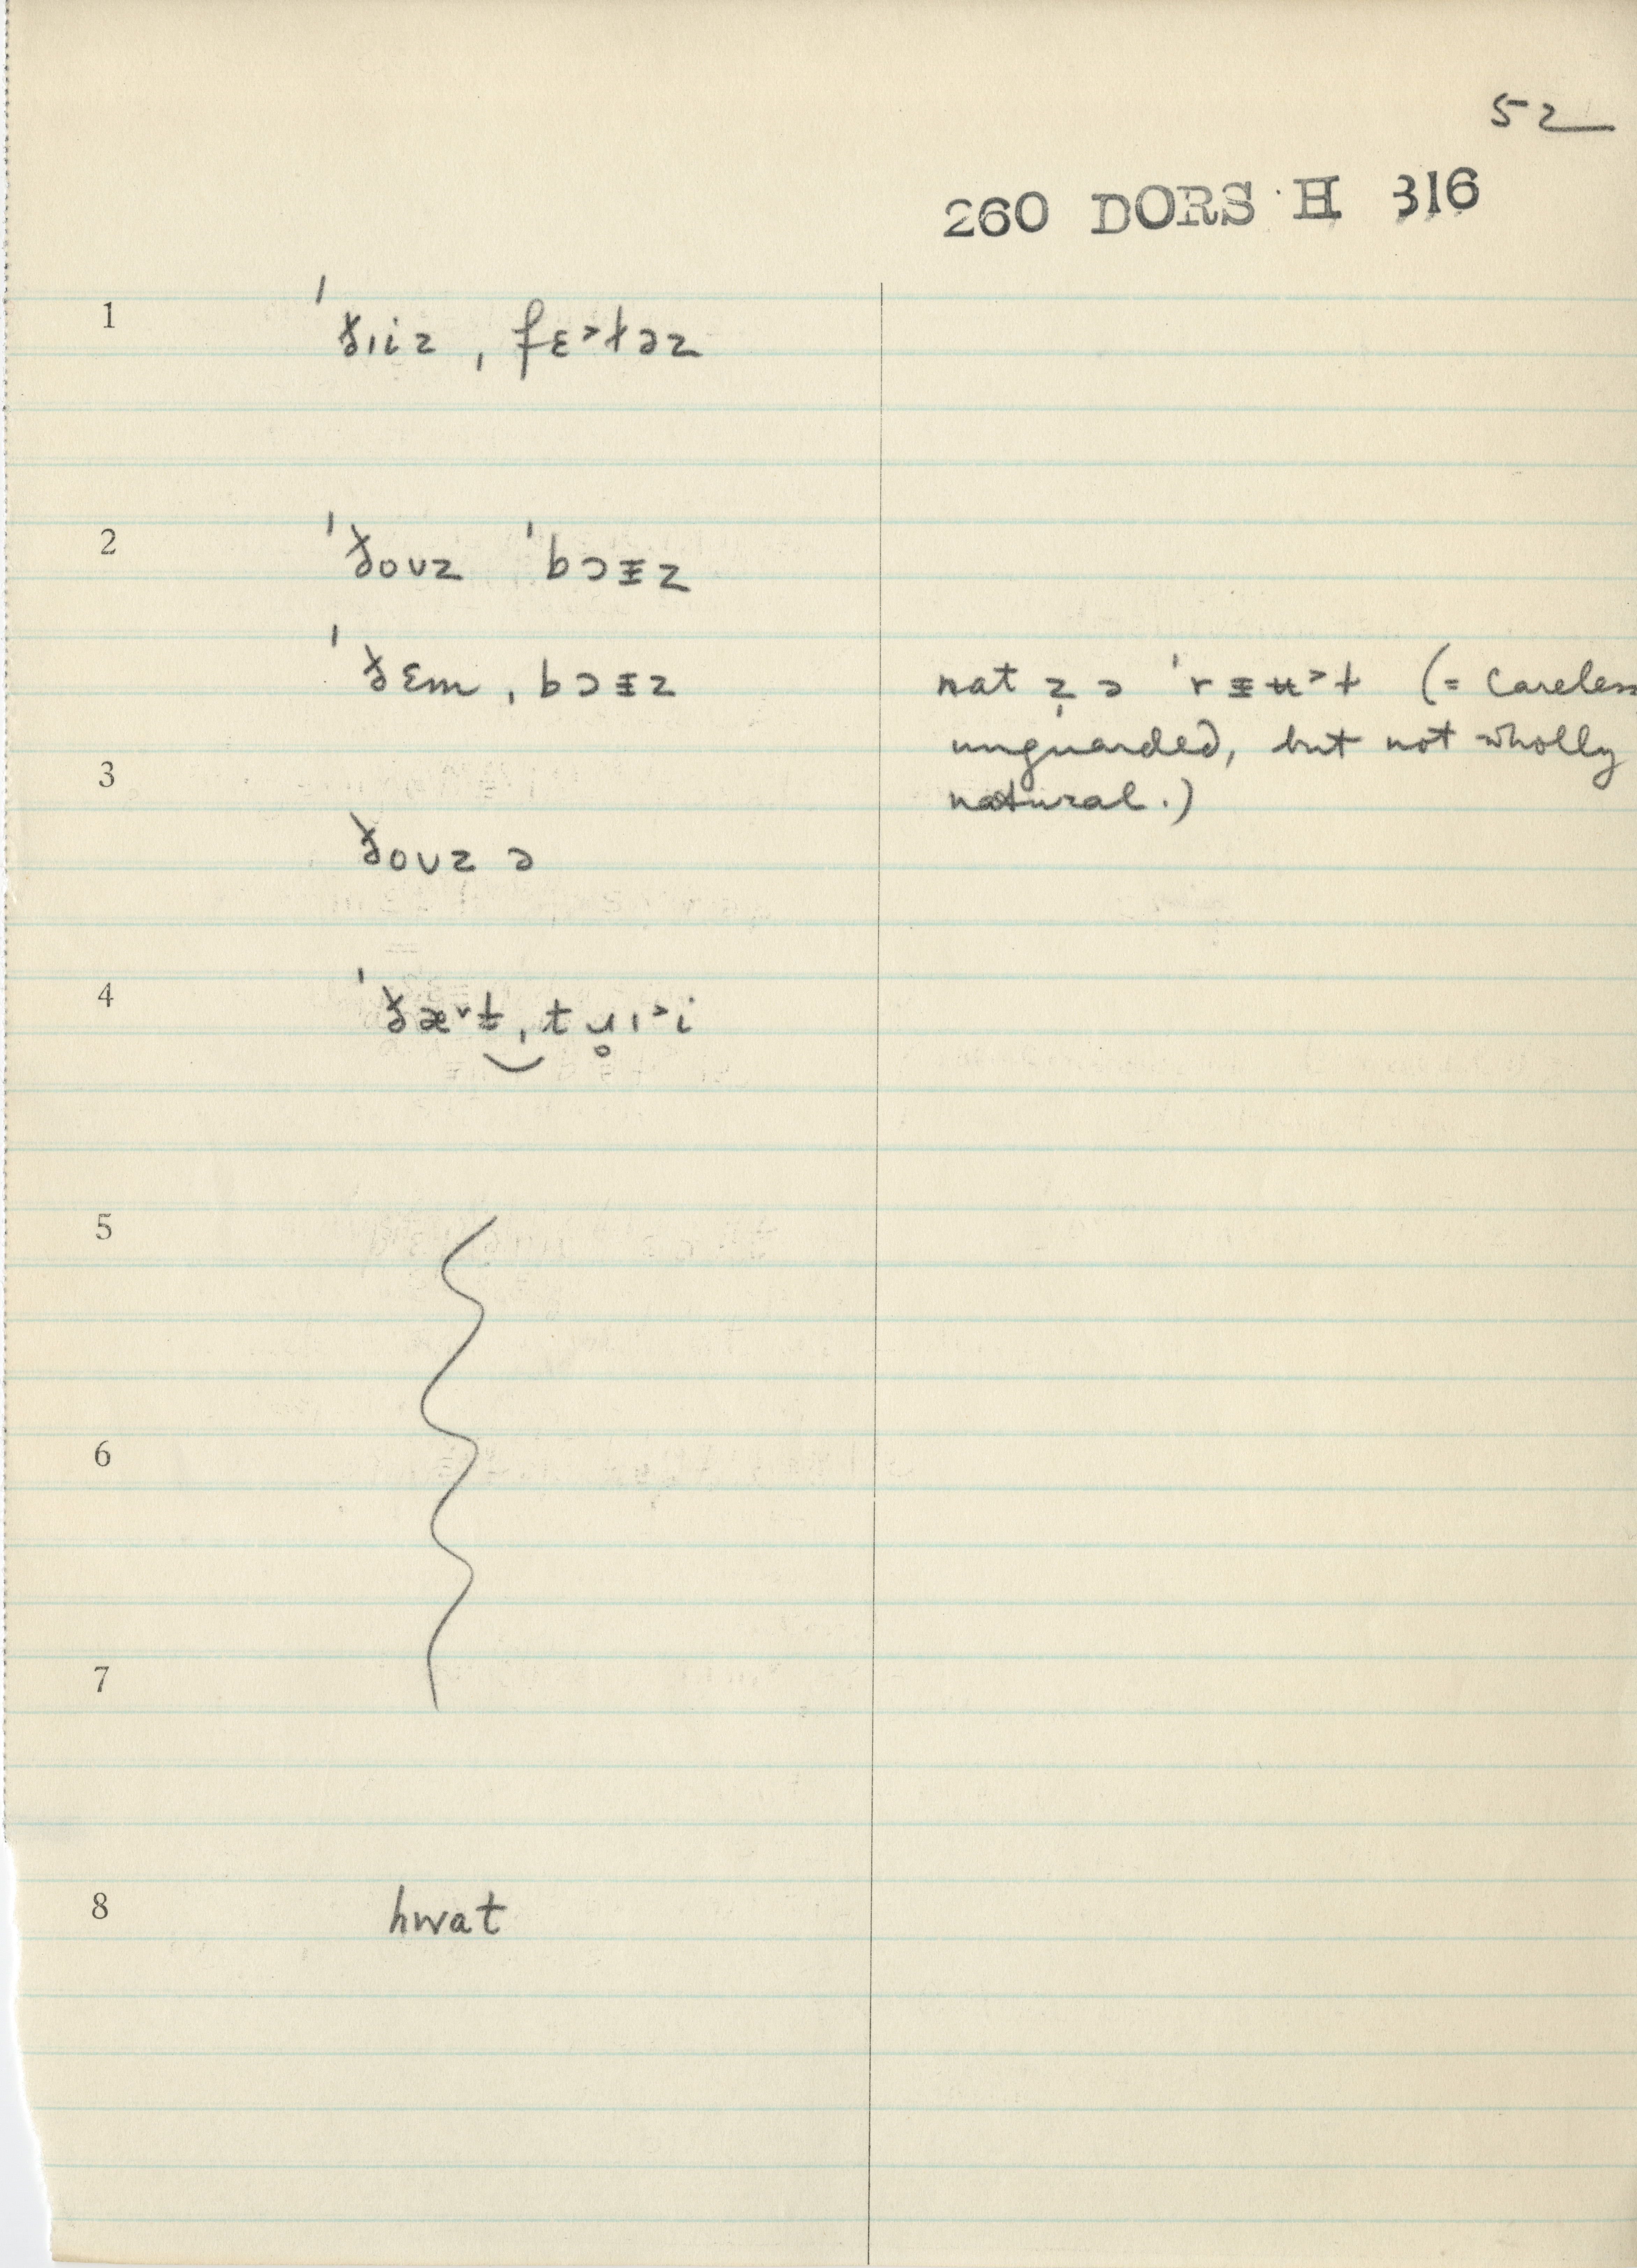 52
260 DORS H 316
1 ˈðɪiz ˌfɛ˃ɫəz
2 ˈðoʊz ˈbɔᵻz
ˈðɛm ˌbɔᵻz nat z̩ ə ˈrᵻʉ˃ɫ (= careless
unguarded, but not wholly
3 natural.)
ðoʊz ə
4 ˈðæ˅t̬ ˌtu̥ɪ˃i
5
6
7
8 hwat